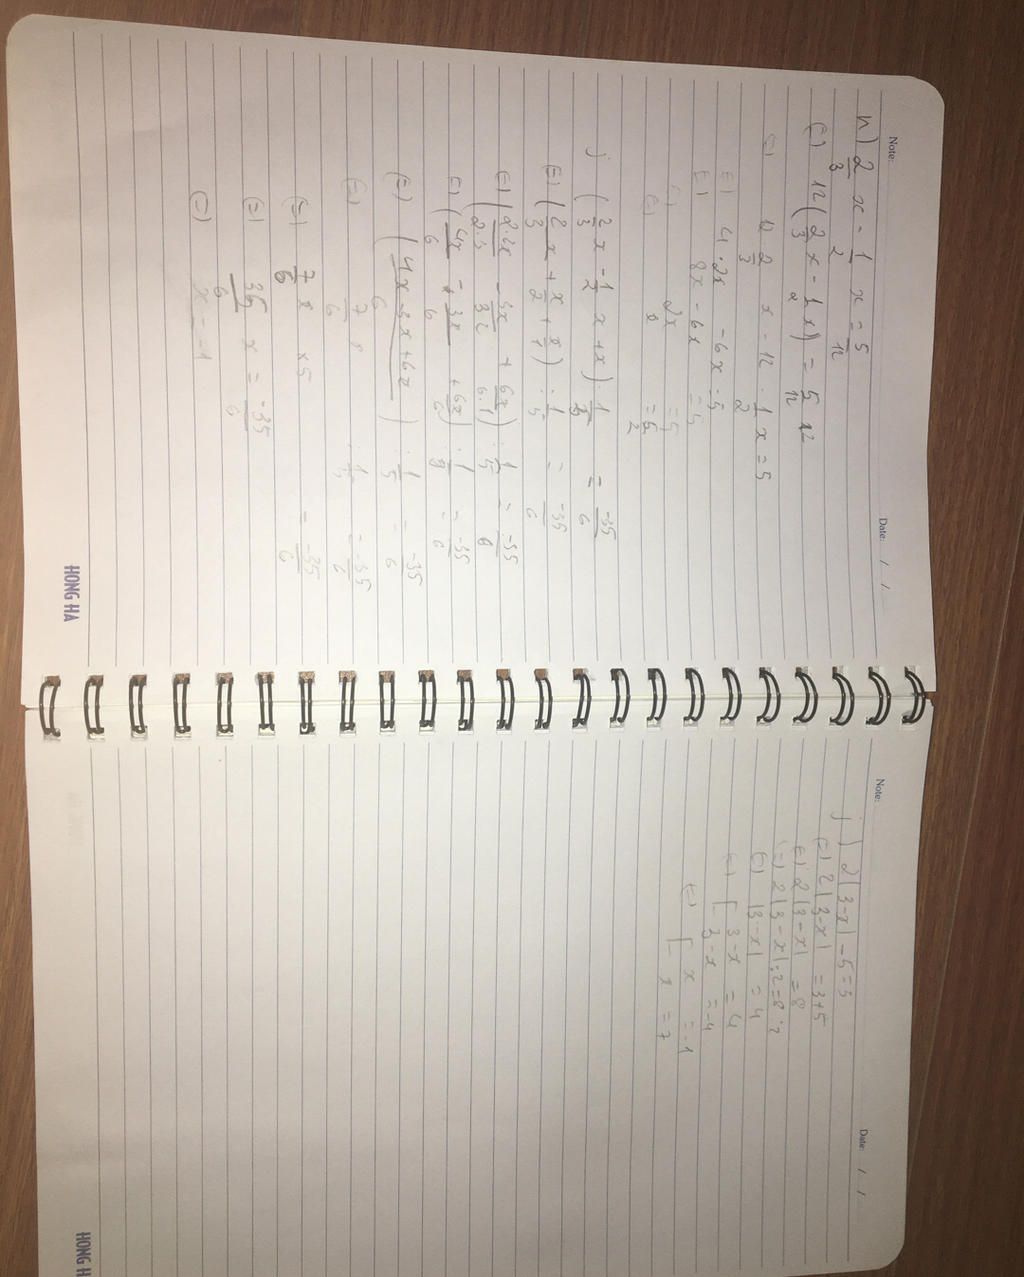 Note:
Date: / /
n) 2/3 x - 1/2 x = 5/12
(=) 12(2/3 x - 1/2 x) = 5/12 12
(=) 12 2/3 x - 12 . 1/2 x = 5
(=) 4.2x - 6x = 5
(=) 8x - 6x = 5
(=) 2x = 5
(=) x = 5/2
j (2/3 x - 1/2 x + x) : 1/5 = -35/6
(=) (2/3 x + x/2 + x/1) : 1/5 = -35/6
(=) (2.2x/2.3 - 3x/3.2 + 6x/6.1) : 1/5 = -35/6
(=) (4x/6 - 3x/6 + 6x/6) : 1/5 = -35/6
(=) (4x - 3x + 6x/6) : 1/5 = -35/6
(=) 7/6 x : 1/5 = -35/6
(=) 7/6 x x5 = -35/6
(=) 35/6 x = -35/6
(=) x = -1
HONG HA
Note:
Date: / /
j) 2|3-x| - 5 = 3
(=) 2|3-x| = 3+5
(=) 2|3-x| = 8
(=) 2|3-x| : 2 = 8 : 2
(=) |3-x| = 4
(=) [ 3-x = 4
[ 3-x = -4
(=) [ x = -1
[ x = 7
HONG H